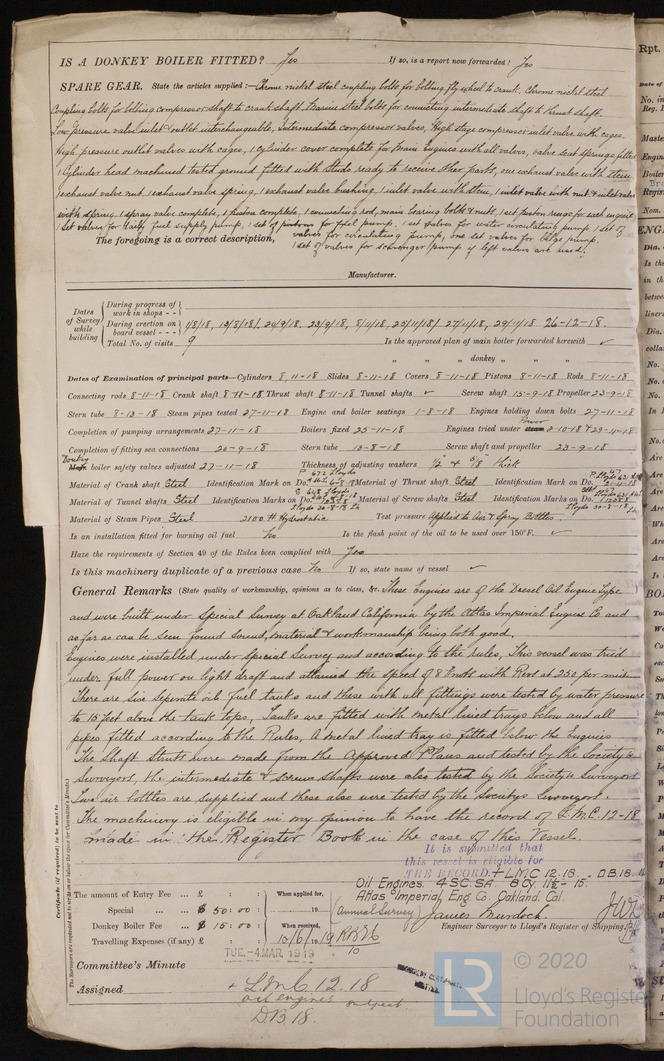 IS A DONKEY BOILER FITTED? Yes If so, is a report now forwarded? Yes
SPARE GEAR. State the articles supplied:— Chrome nickel steel coupling bolts for bolting fly wheel to crank. Chrome nickel steel
Coupling bolts for bolting compressor shaft to crankshaft. Marine steel bolts for connecting intermediate shaft to thrust shaft.
Low pressure valve inlet & outlet interchangeable, intermediate compressor valves, High stage compressor inlet valve with cages.
High pressure outlet valves with cages, 1 cylinder cover complete for Main Engines with all valves, valve seat springs fitted
1 Cylinder head machined tested ground fitted with studs ready to receive other parts, one exhaust valve with stem
1 exhaust valve nut, 1 exhaust valve spring, 1 exhaust valve bushing, 1 inlet valve with stem, 1 inlet valve with nut & inlet valve
with spring, 1 spray valve complete, 1 piston complete, 1 connecting rod, main bearing bolts & nuts, 1 set piston rings for each engine
1 set valves for daily fuel supply pump, 1 set of pistons for fuel pump, 1 set valves for water circulating pump 1 set of
valves for circulating pump, one set valves for bilge pump.
The foregoing is a correct description,
1 set of valves for scavenger pump if left valves are used.
Manufacturer.
Dates of Survey while building
During progress of work in shops - -
During erection on board vessel - - 1/8/18, 13/8/18/. 20/9/18. 23/9/18, 8/11/18, 25/11/18/. 27/11/18, 29/11/18 26-12-18.
Total No. of visits 9 Is the approved plan of main boiler forwarded herewith ✓
" " " donkey " "
Dates of Examination of principal parts—Cylinders 8-11-18 Slides 8-11-18 Covers 8-11-18 Pistons 8-11-18 Rods 8-11-18
Connecting rods 8-11-18 Crank shaft 8-11-18 Thrust shaft 8-11-18 Tunnel shafts ✓ Screw shaft 13-9-18 Propeller 23-9-18
Stern tube 8-13-18 Steam pipes tested 27-11-18 Engine and boiler seatings 1-8-18 Engines holding down bolts 27-11-18
Completion of pumping arrangements 27-11-18 Boilers fixed 25-11-18 Engines tried under Power 2-10-18 & 29-11-18
Completion of fitting sea connections 20-9-18 Stern tube 13-8-18 Screw shaft and propeller 23-9-18
Donkey boiler safety valves adjusted 27-11-18 Thickness of adjusting washers 1/2 & 5/8 thick
Material of Crank shaft Steel Identification Mark on Do. Material of Thrust shaft Steel Identification Mark on Do.
Material of Tunnel shafts Steel Identification Marks on Do. Material of Screw shafts Steel Identification Marks on Do.
Material of Steam Pipes Steel 2100 # Hydrostatic Test pressure Applied to Air & Spray Bottles.
Is an installation fitted for burning oil fuel No Is the flash point of the oil to be used over 150°F. ✓
Have the requirements of Section 49 of the Rules been complied with Yes
Is this machinery duplicate of a previous case No If so, state name of vessel ✓
General Remarks (State quality of workmanship, opinions as to class, &c. These Engines are of the Diesel Oil Engine Type
and were built under Special Survey at Oakland California by the Atlas Imperial Engine Co. and
as far as can be seen found sound, material & workmanship being both good.
Engines were installed under special survey and according to the rules. This vessel was tried
under full power on light draft and attained the speed of 8 knots with Revs at 232 per min
There are six separate oil fuel tanks and these with all fittings were tested by water pressure
to 15 feet above the tank tops, Tanks are fitted with metal lined trays below and all
pipes fitted according to the Rules, A metal lined tray is fitted below the Engines
The Shaft Struts were made from the Approved Plans and tested by the Society's
Surveyors, the intermediate & screw shafts were also tested by the Society's Surveyors
Two air bottles are supplied and these also were tested by the Societys Surveyors.
The machinery is eligible in my opinion to have the record of L.M.C. 12-18
made in the Register Book in the case of this Vessel.
It is submitted that
this vessel is eligible for
THE RECORD. + LMC 12.18. DB 18.
Oil Engines. 4SC.SA 8Cy. 11½ - 15.
Atlas Imperial Eng Co. Oakland. Cal.
The amount of Entry Fee ... £ : :
Special ... $ 50:00
Donkey Boiler Fee ... $ 15:00
Travelling Expenses (if any) £ : :
When applied for,
When received,
(Annual Survey)
James Murdoch.
Engineer Surveyor to Lloyd's Register of Shipping.
TUE.-4 MAR. 1919
Committee's Minute
Assigned + L.M.C. 12.18
oil engines
DB 18.
Certificate (if required) to be sent to
The Surveyors are requested not to write on or below the space for Committee's Minute.
LR
© 2020
Lloyd's Register
Foundation
Rpt.